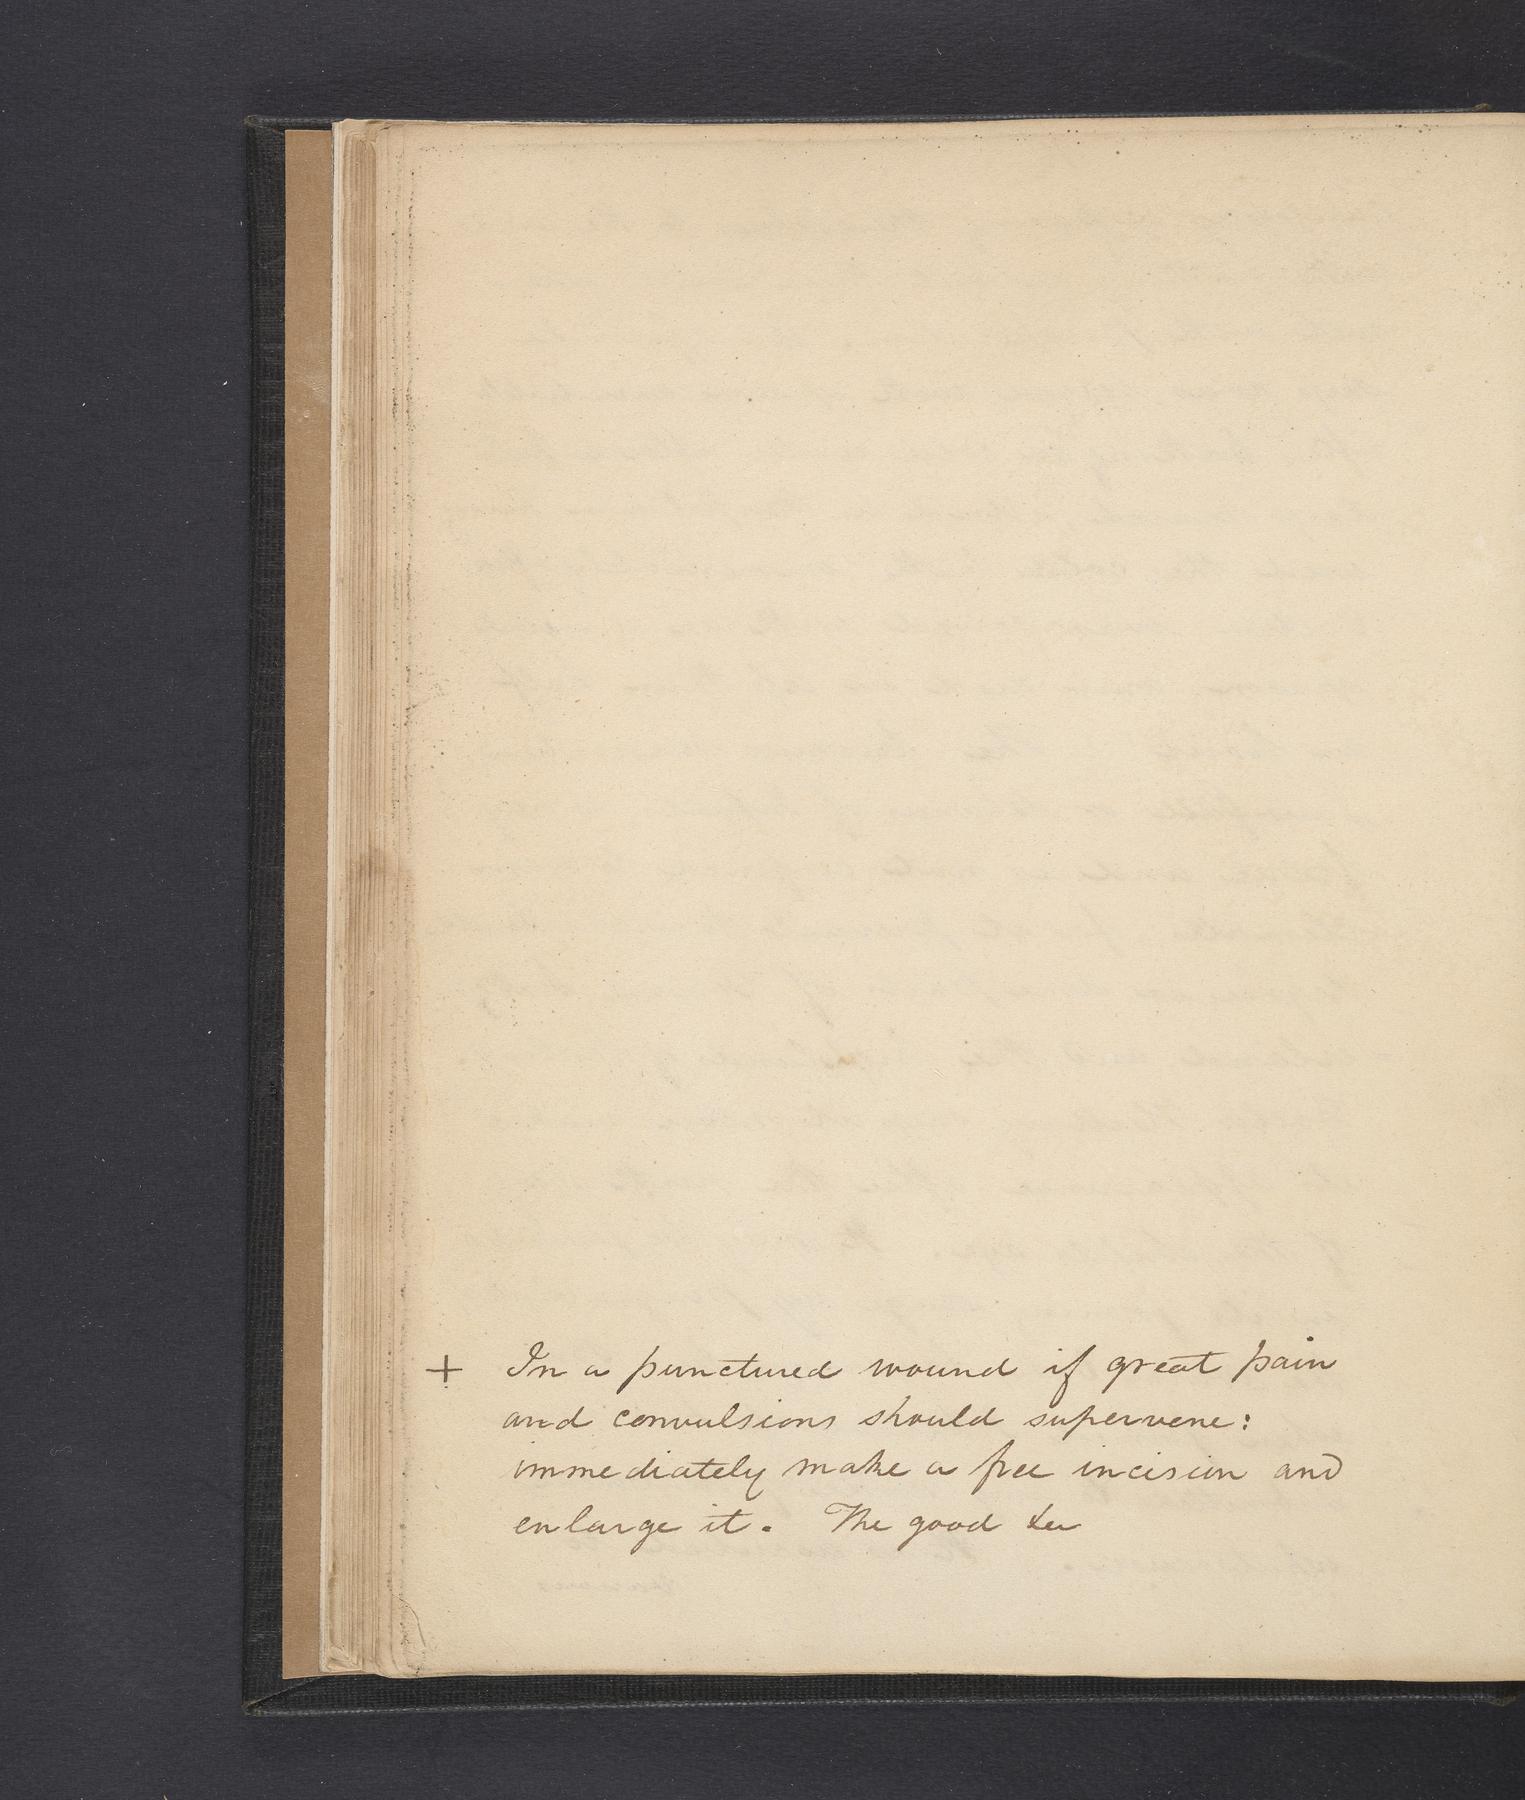 + In a punctured wound if great pain
and convulsions should supervene:
immediately make a free incision and
enlarge it. The good